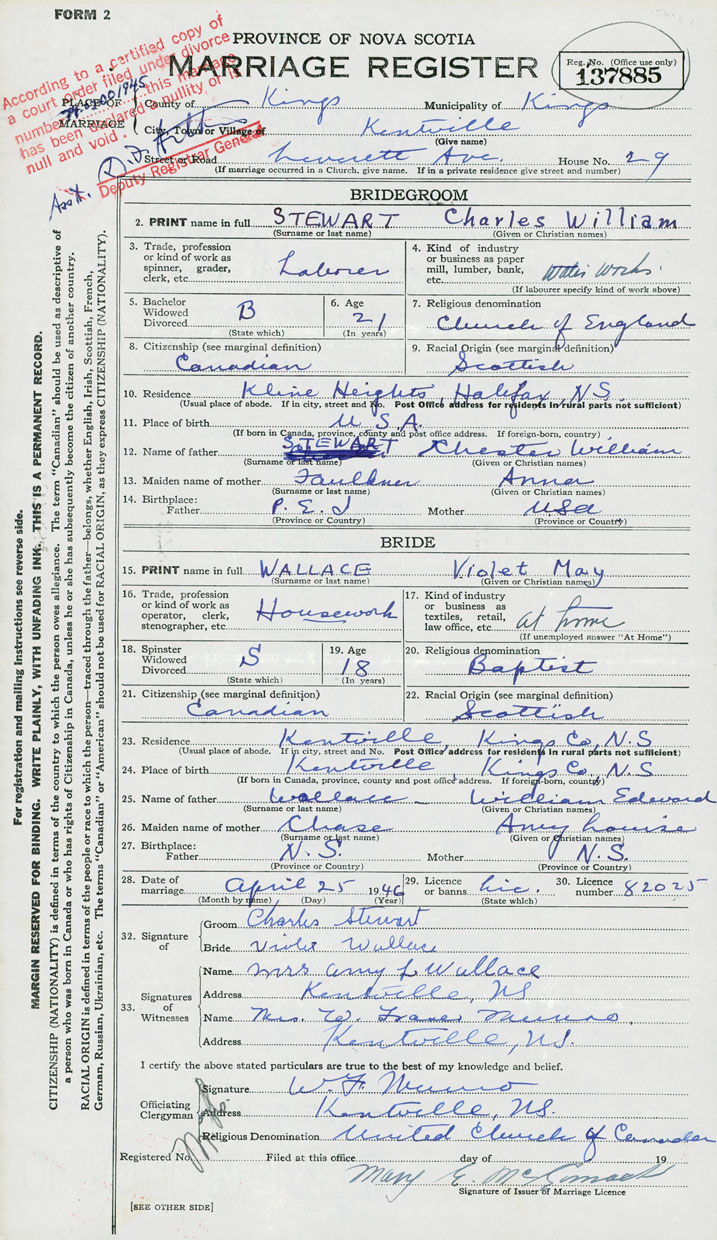 FORM 2
PROVINCE OF NOVA SCOTIA
MARRIAGE REGISTER
Reg. No. (Office use only)
137885
According to a certified copy of
a court order filed under divorce
number this marriage
has been declared a nullity or is
null and void.
Deputy Registrar General
Asst.
PLACE OF MARRIAGE
County of Kings Municipality of Kings
City, Town or Village of Kentville
(Give name)
Street or Road Leverett Ave. House No. 29
(If marriage occurred in a Church, give name. If in a private residence give street and number)
BRIDEGROOM
2. PRINT name in full STEWART Charles William
(Surname or last name) (Given or Christian names)
3. Trade, profession or kind of work as spinner, grader, clerk, etc. Laborer
4. Kind of industry or business as paper mill, lumber, bank, etc. Water Works.
(If labourer specify kind of work above)
5. Bachelor Widowed Divorced B
(State which)
6. Age 21
(In years)
7. Religious denomination
Church of England
8. Citizenship (see marginal definition)
Canadian
9. Racial Origin (see marginal definition)
Scottish
10. Residence Kline Heights, Halifax, N.S.
(Usual place of abode. If in city, street and No. Post Office address for residents in rural parts not sufficient)
11. Place of birth U.S.A.
(If born in Canada, province, county and post office address. If foreign-born, country)
12. Name of father STEWART Chester William
(Surname or last name) (Given or Christian names)
13. Maiden name of mother Faulkner Anna
(Surname or last name) (Given or Christian names)
14. Birthplace:
Father P.E.I Mother USA
(Province or Country) (Province or Country)
BRIDE
15. PRINT name in full WALLACE Violet May
(Surname or last name) (Given or Christian names)
16. Trade, profession or kind of work as operator, clerk, stenographer, etc. Housework
17. Kind of industry or business as textiles, retail, law office, etc. at home
(If unemployed answer "At Home")
18. Spinster Widowed Divorced S
(State which)
19. Age 18
(In years)
20. Religious denomination
Baptist
21. Citizenship (see marginal definition)
Canadian
22. Racial Origin (see marginal definition)
Scottish
23. Residence Kentville, Kings Co, N.S
(Usual place of abode. If in city, street and No. Post Office address for residents in rural parts not sufficient)
24. Place of birth Kentville, Kings Co, N.S
(If born in Canada, province, county and post office address. If foreign-born, country)
25. Name of father Wallace William Edward
(Surname or last name) (Given or Christian names)
26. Maiden name of mother Chase Amy Louise
(Surname or last name) (Given or Christian names)
27. Birthplace:
Father N.S. Mother N.S.
(Province or Country) (Province or Country)
28. Date of marriage April 25 1946
(Month by name) (Day) (Year)
29. Licence or banns Lic.
(State which)
30. Licence number 82025
32. Signature of
Groom Charles Stewart
Bride Violet Wallace
33. Signatures of Witnesses
Name Mrs Amy L Wallace
Address Kentville, NS
Name Mrs. W. Munro.
Address Kentville, N.S.
I certify the above stated particulars are true to the best of my knowledge and belief.
Officiating Clergyman
Signature W. F. Munro
Address Kentville, N.S.
Religious Denomination United Church of Canada
Registered No. Filed at this office day of 19
Mary E. McCormack
Signature of Issuer of Marriage Licence
[SEE OTHER SIDE]
For registration and mailing instructions see reverse side.
MARGIN RESERVED FOR BINDING. WRITE PLAINLY, WITH UNFADING INK. THIS IS A PERMANENT RECORD.
CITIZENSHIP (NATIONALITY) is defined in terms of the country to which the person owes allegiance. The term "Canadian" should be used as descriptive of
a person who was born in Canada or who has rights of Citizenship in Canada, unless he or she has subsequently become the citizen of another country.
RACIAL ORIGIN is defined in terms of the people or race to which the person—traced through the father—belongs, whether English, Irish, Scottish, French,
German, Russian, Ukrainian, etc. The terms "Canadian" or "American" should not be used for RACIAL ORIGIN, as they express CITIZENSHIP (NATIONALITY).